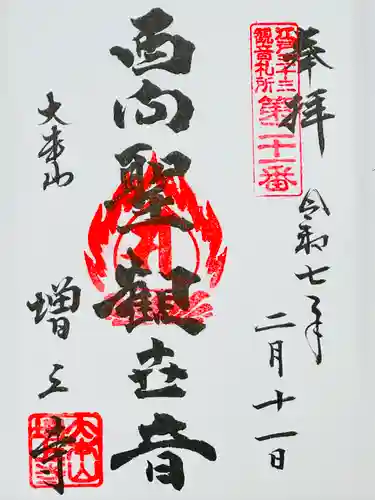 奉拝
江戸三十三
観音札所
第二十一番
令和七年
二月十一日
西向聖観世音
大本山
増上寺
大本山